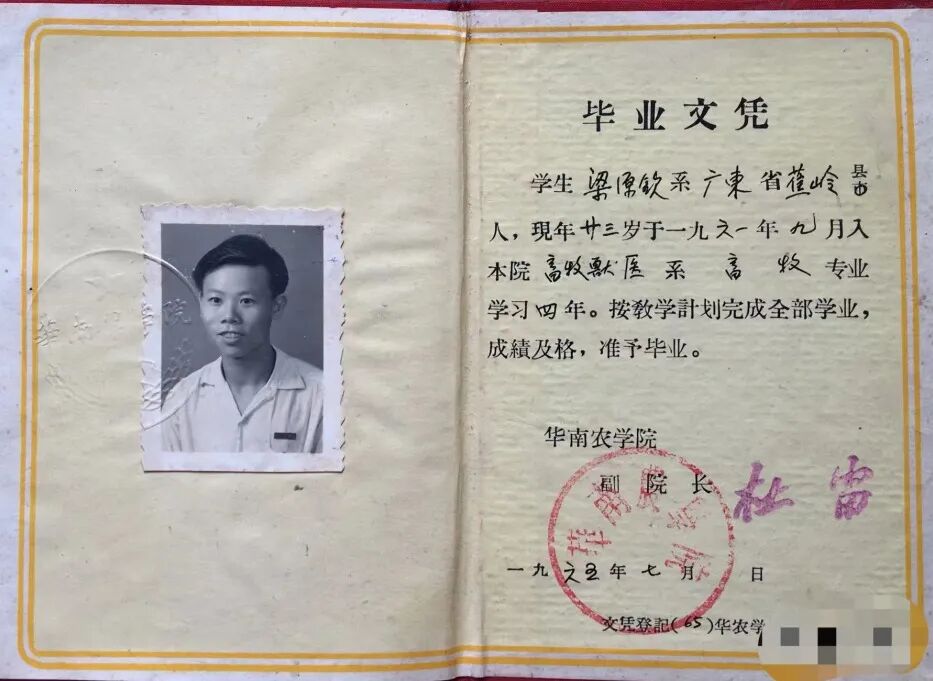 毕业文凭
学生梁原钦系广東省蕉岭县市
人，現年廿三岁于一九六一年九月入
本院畜牧獸医系畜牧专业
学习四年。按教学計划完成全部学业，
成績及格，准予毕业。
华南农学院
副院长 杜雷
一九六五年七月 日
文凭登記(65)华农学